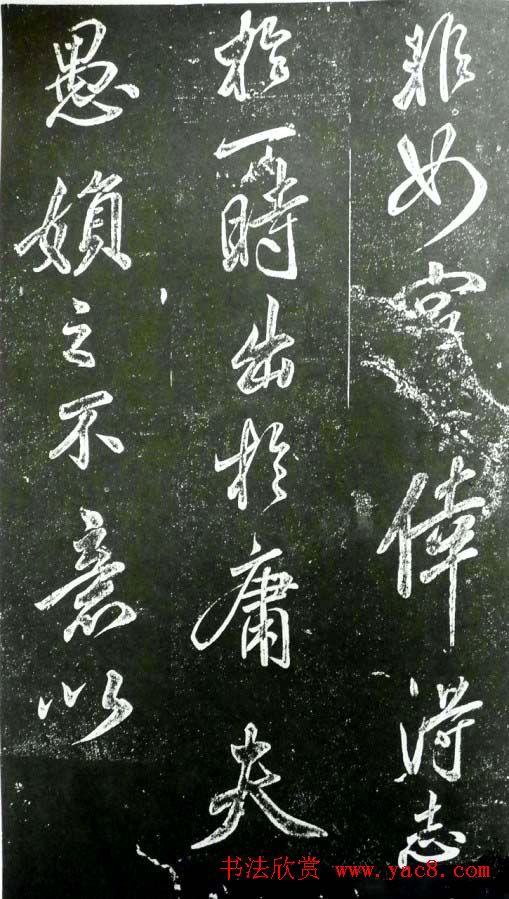 非如倖得志
於一時出於庸夫
愚媍之不意以
书法欣赏 www.yac8.com